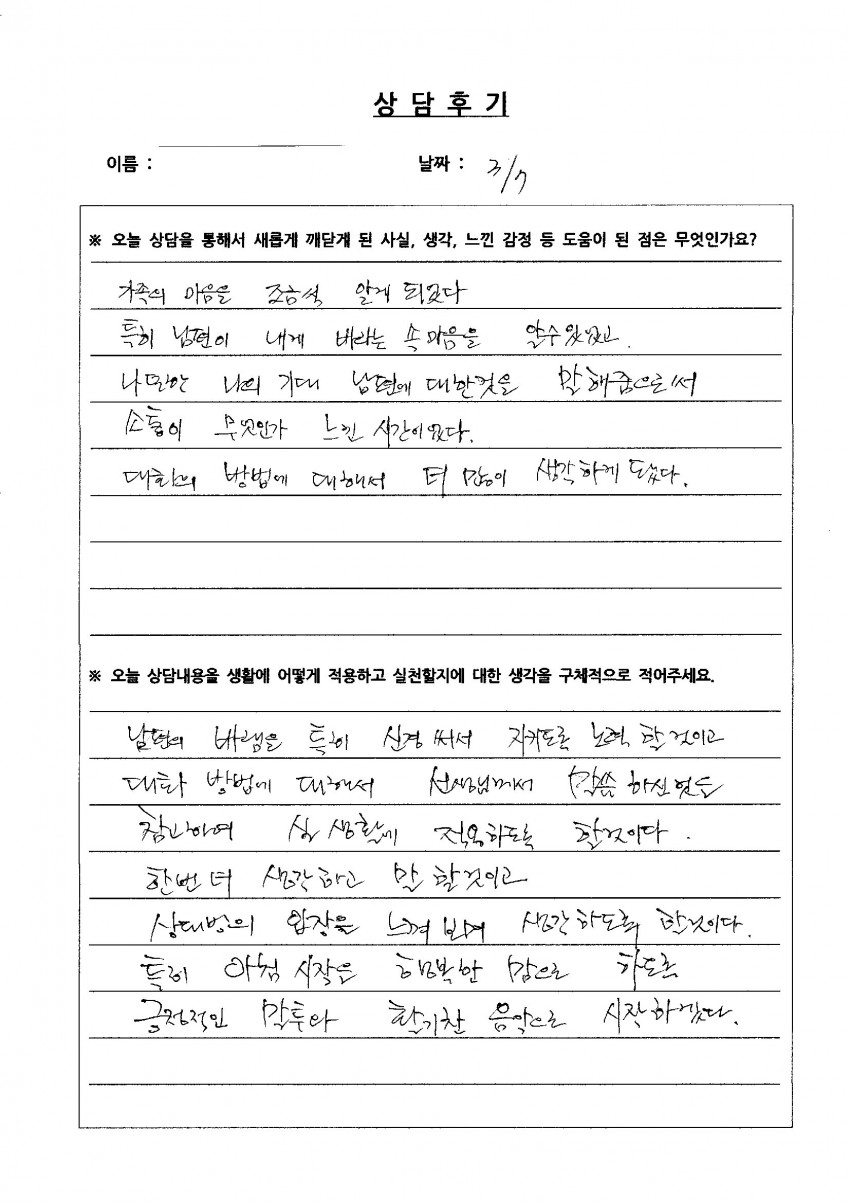 상 담 후 기
이름 :
날짜 : 3/7
※ 오늘 상담을 통해서 새롭게 깨닫게 된 사실, 생각, 느낀 감정 등 도움이 된 점은 무엇인가요?
가족의 마음을 조금씩 알게 되었다
특히 남편이 내게 바라는 속마음을 알수있었고.
나 또한 나의 기대 남편에 대한것을 말해줌으로써
소통이 무엇인가 느낀 시간이었다.
대화의 방법에 대해서 더 많이 생각하게 됐다.
※ 오늘 상담내용을 생활에 어떻게 적용하고 실천할지에 대한 생각을 구체적으로 적어주세요.
남편의 바램을 특히 신경써서 지키도록 노력 할것이고
대화 방법에 대해서 선생님께서 말씀 하신 것들
참고하여 실 생활에 적용하도록 할것이다.
한번 더 생각하고 말 할것이고
상대방의 입장을 느껴 보며 생각하도록 할것이다.
특히 아침 시작은 행복한 맘으로 하도록
긍정적인 말투와 활기찬 음악으로 시작하겠다.